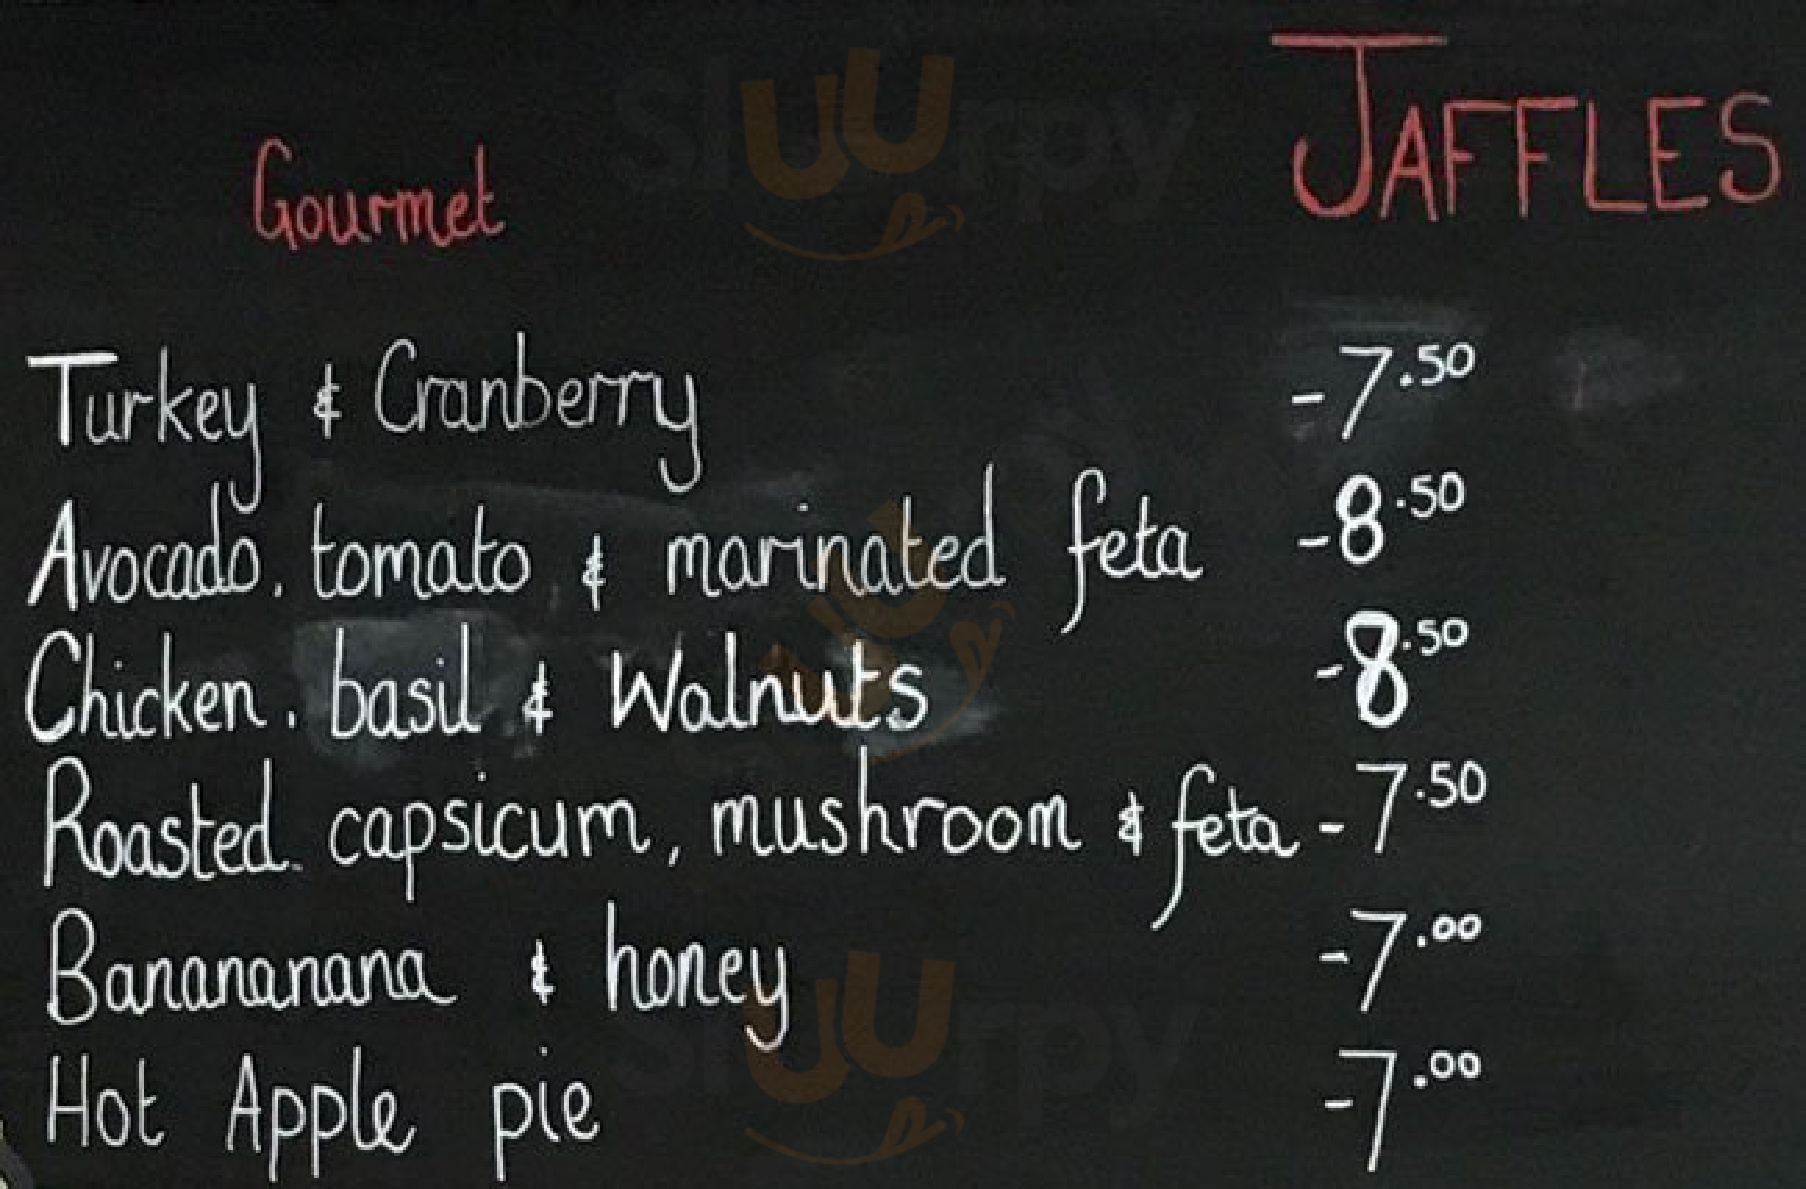 JAFFLES
Gourmet
Turkey & Cranberry -7.50
Avocado, tomato & marinated feta -8.50
Chicken, basil & Walnuts -8.50
Roasted capsicum, mushroom & feta -7.50
Banananana & honey -7.00
Hot Apple pie -7.00
sluurpy
sluurpy